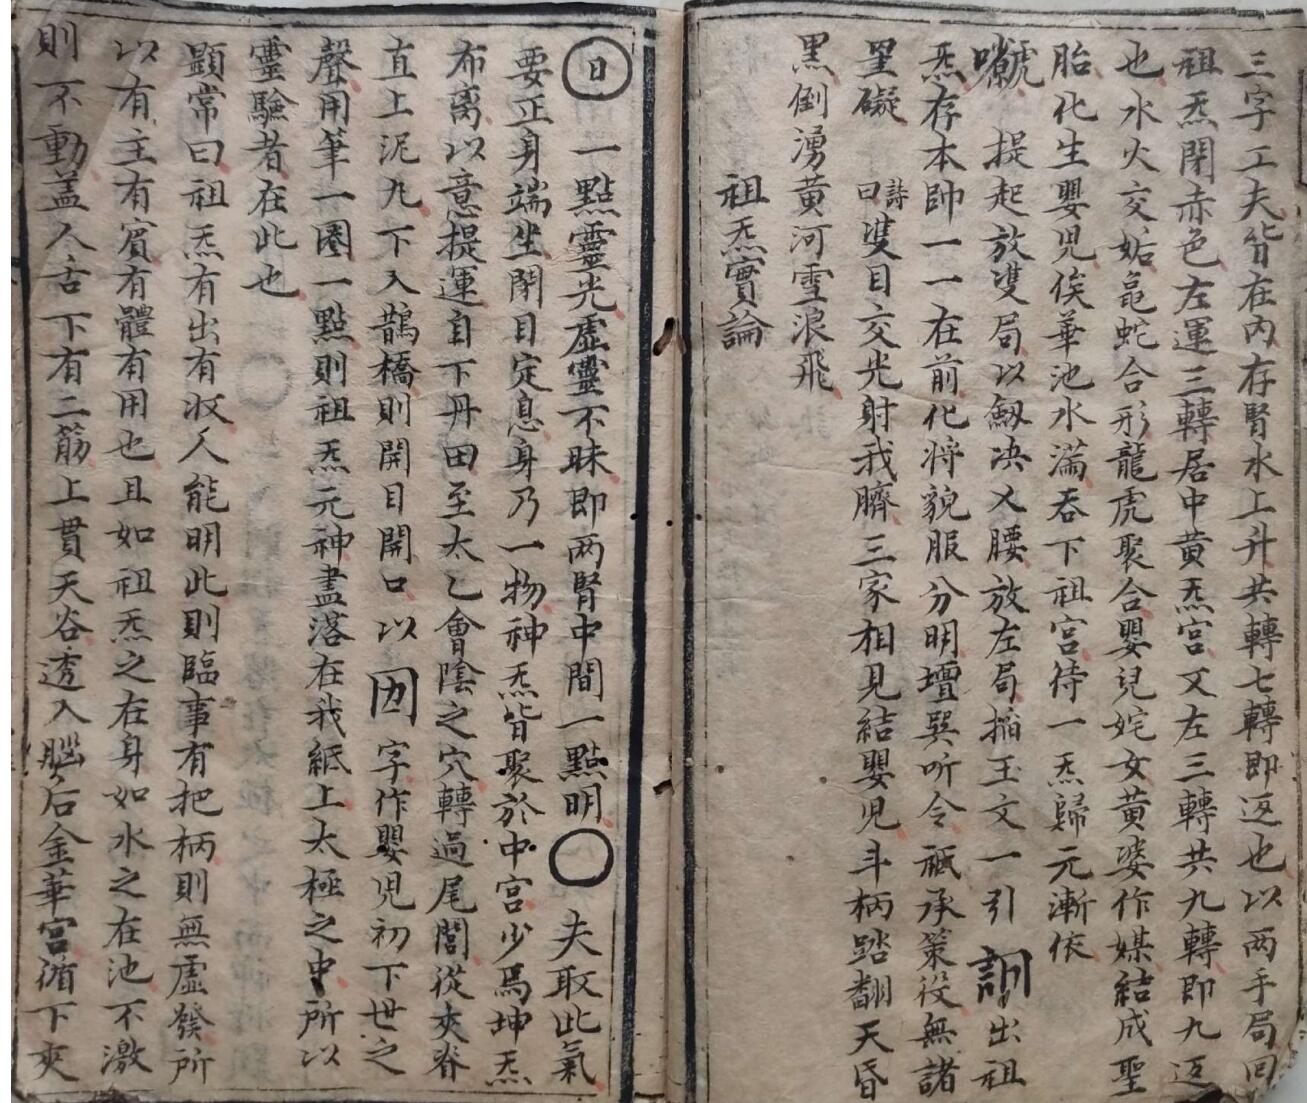 三字工夫皆在内存腎水上升共轉七轉即返也以两手局回
祖炁閉赤色左運三轉居中黄炁宫又左三轉共九轉即九返
也水火交姤黽蛇合形龍虎聚合嬰兒姹女黄婆作媒結成聖
胎化生嬰児俟華池水滿吞下祖宫待一炁歸元漸依
提起放雙局以劔决入腰放左局掐玉文一引 出祖
炁存本帥一一在前化将貌服分明壇巽听令祗承策役無諸
罣礙 詩曰雙目交光射我臍三家相見結嬰児斗柄踏翻天昏
黑倒湧黄河雪浪飛
祖炁實論
日 一點靈光虚靈不昧即两腎中間一點明〇夫取此氣
要正身端坐閉目定息身乃一物神炁皆聚於中宫少焉坤炁
布离以意提運自下丹田至太乙會陰之穴轉過尾閭從夾脊
直上泥九下入鵲橋則開目開口以 字作嬰児初下世之
聲用筆一圈一點則祖炁元神盡落在我紙上太極之中所以
靈驗者在此也
顕常曰祖炁有出有収人能明此則臨事有把柄則無虚發所
以有主有賔有體有用也且如祖炁之在身如水之在池不激
則不動盖人舌下有二筋上貫天谷透入腦后金華宫循下夾